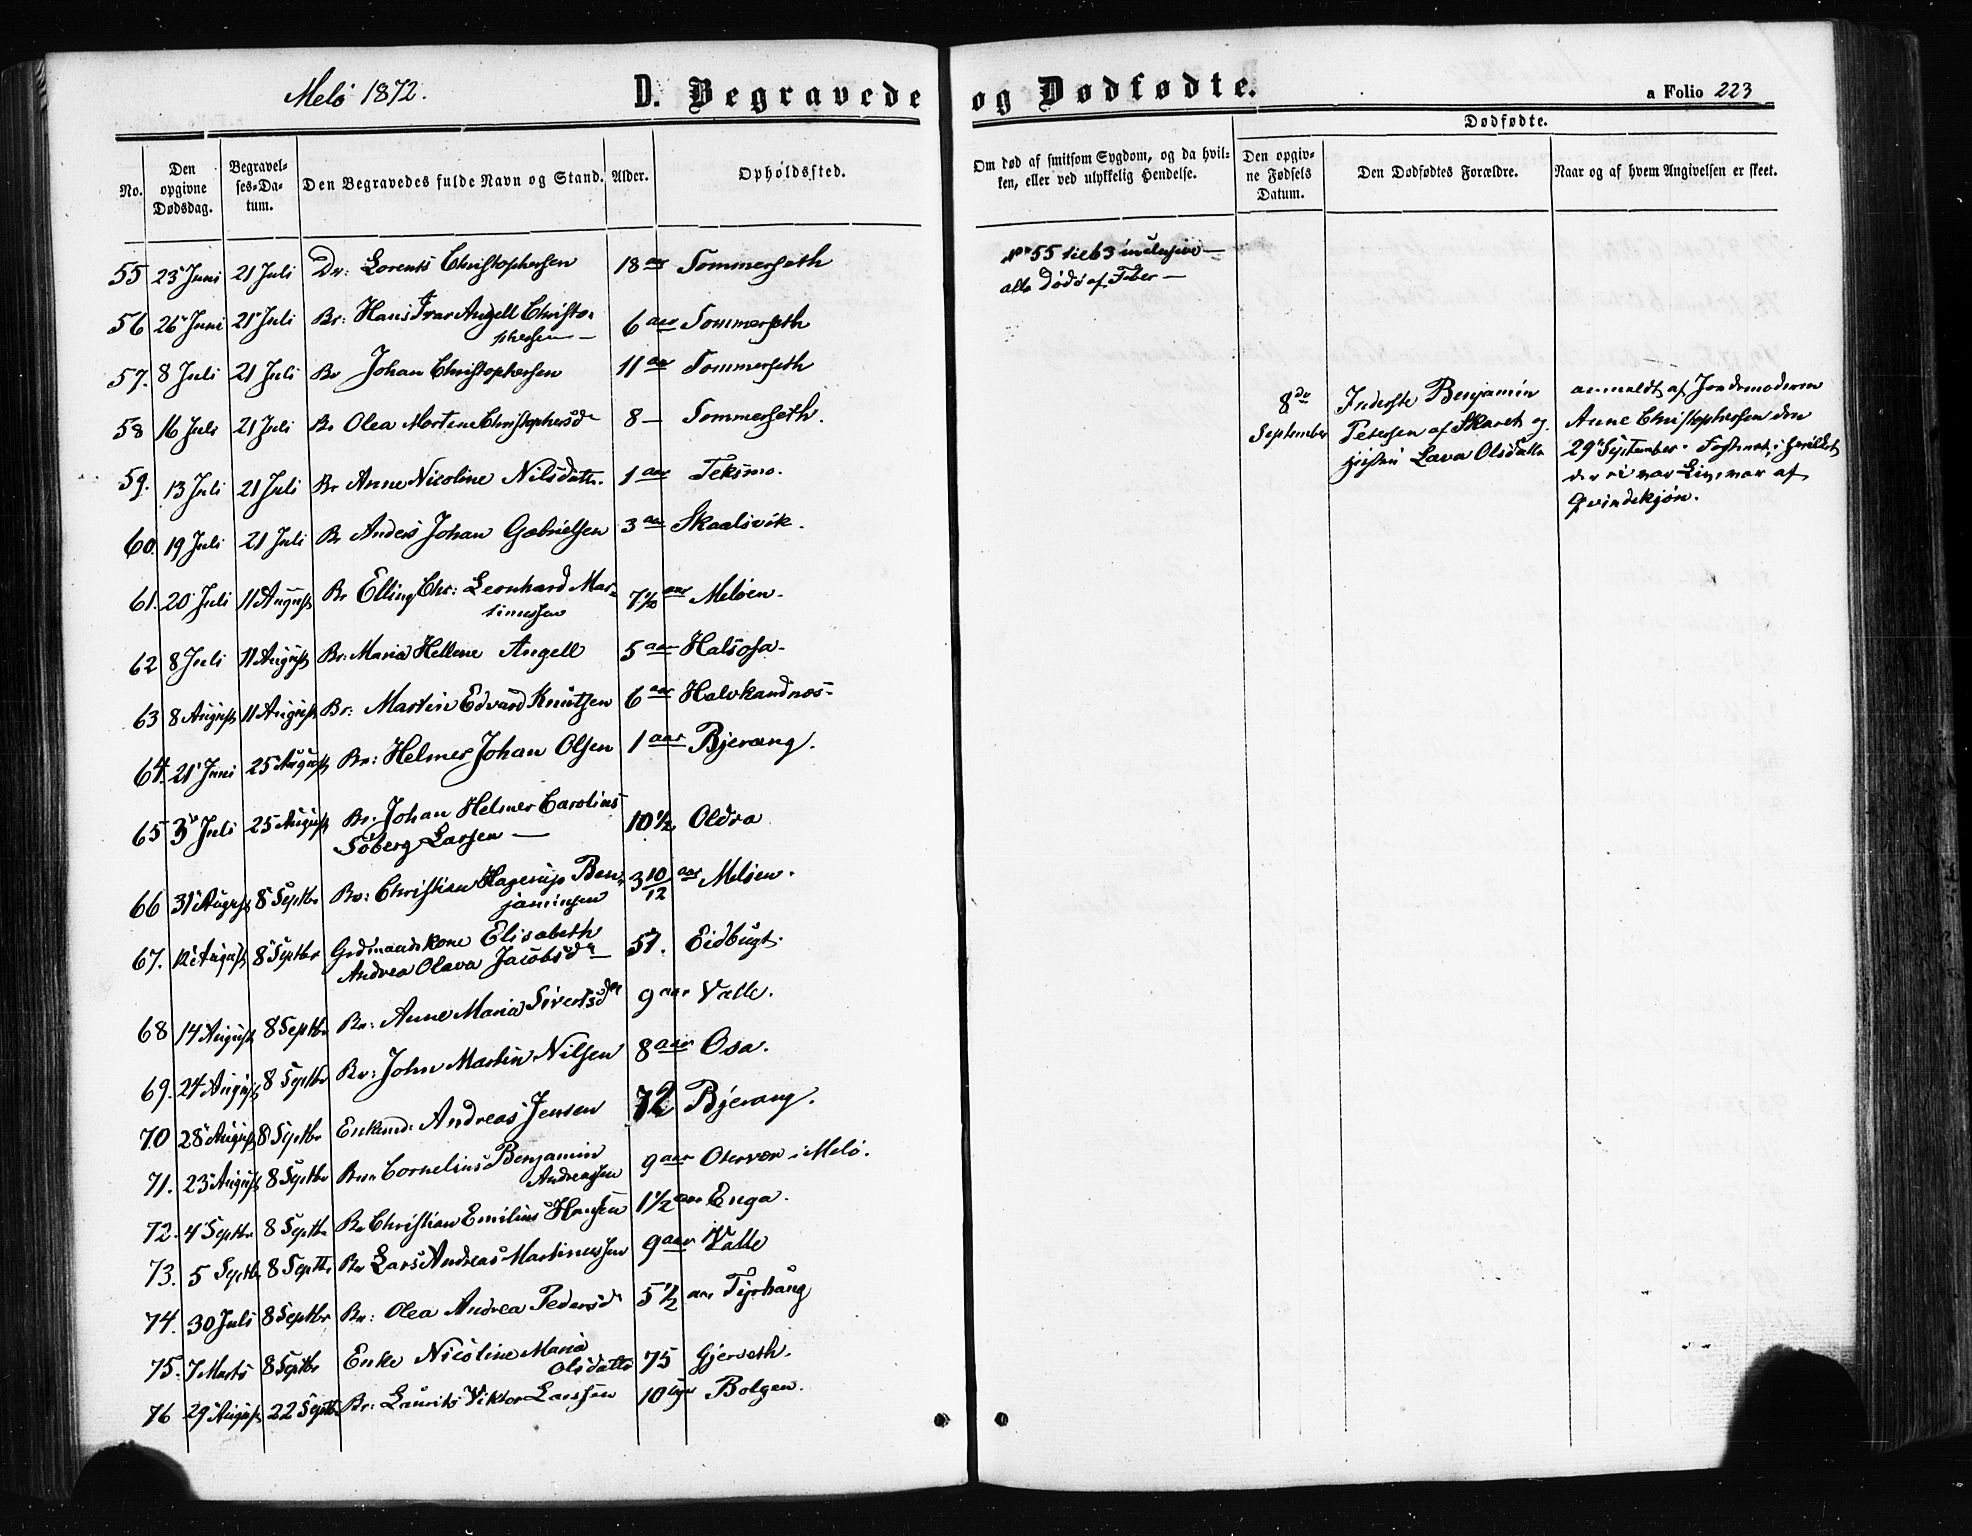 Melö 1872.
D. Begravede
No.
Den opgivne Dødsdag.
Begravelses-Datum.
Den Begravedes fulde Navn og Stand.
Alder.
Opholdssted.
55 23 Juni 21 Juli Dr: Lorents Christophersen 18 aar Sommerseth
56 26 Juni 21 Juli Br: Hans Ivar Angell Christo-
phersen 6 aar Sommerseth
57. 8 Juli 21 Juli Br Johan Christophersen 11 aar Sommerseth
58 16 Juli 21 Juli Br Olea Martine Christophersdr 8 — Sommerseth.
59. 13 Juli 21 Juli Br Anne Nicoline Nilsdattr. 1 aar Teksmo.
60. 19 Juli 21 Juli Br Anders Johan Gabrielsen 3 aar Skaalsvik.
61. 20 Juli 11 August Br Elling Chr: Leonhard Mar-
tinussen 7 aar Melöen.
62 8 Juli 11 August Br: Maria Hellene Angell 5 aar Halsosa.
63 8 August 11 August Br: Martin Edvard Knutsen 6 aar Halvkandnes.
64. 21 Juni 25 August Br: Helmer Johan Olsen 1 aar Bjerang.
65 3 Juli 25 August Br. Johan Helmer Carolius
Söberg Larsen — 10 1/2 Oldra
66 31 August 8 Septbr Br: Christian Hagerup Ben-
jaminsen 3 10/12 aar Melöen.
67. 12 August 8 Septbr Grdmandskone Elisabeth
Andrea Olava Jacobsdr 57. Eidbugt.
68 14 August 8 Septbr Br: Anne Maria Sivertsdr 9 aar Valle.
69. 24 August 8 Septbr Br: John Martin Nilsen 8 aar Osa.
70 28 August 8 Septbr Enkmd: Andreas Jensen 72 Bjerang.
71. 23 August 8 Septbr Brn Cornelius Benjamin
Andreassen 9 aar Otervær i Melö.
72. 4 Septbr 8 Septbr Br Christian Emilius Hansen 1 1/2 aar Enga.
73. 5 Septbr 8 Septbr Br Lars Andreas Martinussen 9 aar Valle
74. 30 Juli 8 Septbr Br: Olea Andrea Pedersdr 5 1/2 aar Tyrhaug
75. 7 Marts 8 Septbr Enke Nicoline Maria
Olsdatter 75 Gjerseth.
76 29 August 22 Septbr Br: Laurits Viktor Larssen 10 Bolgen.
og Dødfødte.
a Folio 223
Om død af smitsom Sygdom, og da hvil-
ken, eller ved ulykkelig Hendelse.
Dødfødte.
Den opgiv-
ne Fødsels
Datum.
Den Dødfødtes Forældre.
Naar og af hvem Angivelsen er skeet.
No 55 til 63 inclusive —
alle döde af Feber —
8de
September
Inderste Benjamin
Petersen af Skaret og
Lava Olsdatter
anmeldt af Jordemoderen
Anne Christophersen den
29 September. Fosteret, i hvilket
der ei var Liv, var af
Qvindekjön.